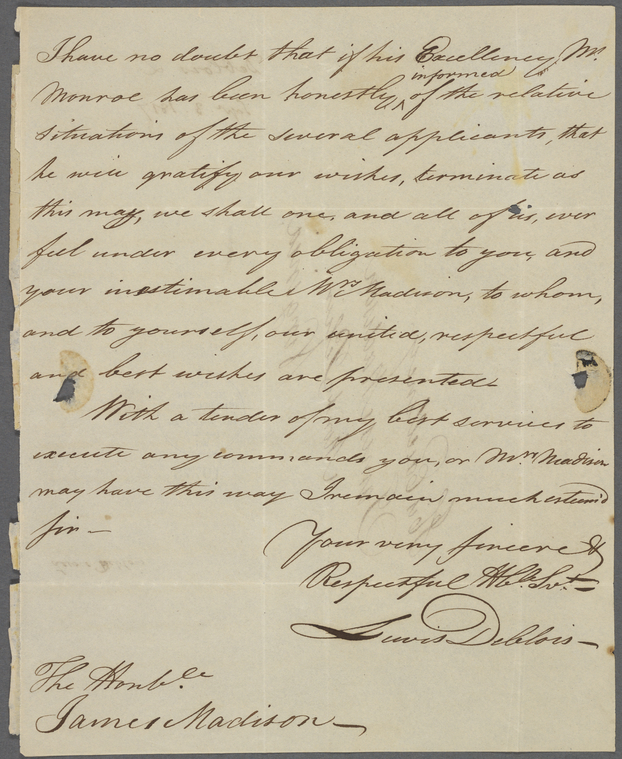 I have no doubt that if his Excellency, Mr.
Monroe has been honestly, ^ informed of the relative
situations of the several applicants, that
he will gratify our wishes, terminate as
this may, we shall one, and all of us, ever
feel under every obligation to you, and
your inestimable Mrs. Madison, to whom,
and to yourself, our united, respectful
and best wishes are presented.
With a tender of my best services to
execute any commands you, or Mrs. Madison
may have this way I remain much esteem'd
Sir —
Your very sincere &
Respectful Hble. Svt. —
Lewis Deblois —
The Honble.
James Madison —